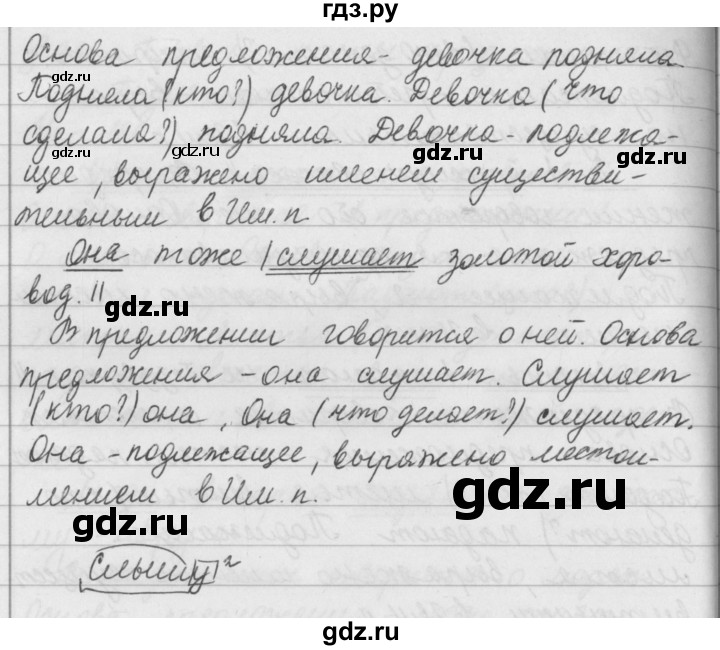 гдз.ру
Основа предложения - девочка подняла.
gdz.ru gdz.ru gdz.ru
Подняла (кто?) девочка. Девочка (что
сделала?) подняла. Девочка - подлежа-
gdz.ru gdz.ru gdz.ru
щее, выражено именем существи-
тельным в Им. п.
Она тоже | слушает золотой хоро-
вод. ||
В предложении говорится о ней. Основа
предложения - она слушает. Слушает
(кто?) она, Она (что делает?) слушает.
Она - подлежащее, выражено местои-
мением в Им. п.
gdz.ru gdz.ru
слышу²
gdz.ru